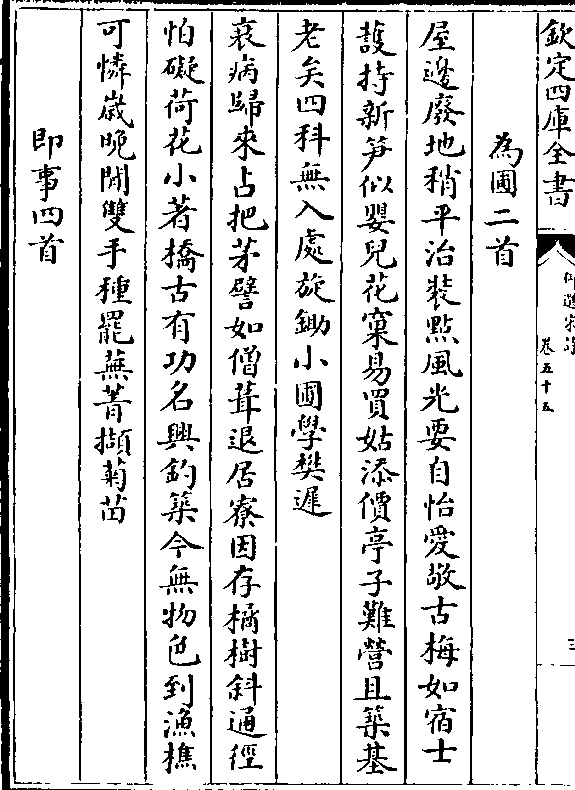 欽定四庫全書
卷五十五
三
為圃二首
屋邊廢地稍平治裝點風光要自怡愛敬古梅如宿士
䕶持新笋似嬰兒花窠易買姑添價亭子難營且築基
老矣四科無入處旋鋤小圃學樊遲
衰病歸來占把茅譬如僧葺退居寮因存橘樹斜通徑
怕礙荷花小著橋古有功名興釣築今無物色到漁樵
可憐嵗晚閒雙手種罷蕪菁擷菊苗
即事四首